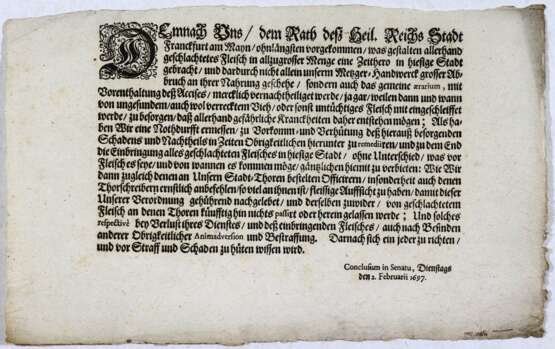 DEmnach Uns / dem Rath deß Heil. Reichs Stadt
Franckfurt am Mayn / ohnlängsten vorgekommen / was gestalten allerhand
geschlachtetes Fleisch in allzugrosser Menge eine Zeithero in hiesige Stadt
gebracht / und dardurch nicht allein unserm Metzger-Handwerck grosser Ab-
bruch an ihrer Nahrung geschehe / sondern auch das gemeine ærarium, mit
Vorenthaltung deß Accises / mercklich vernachtheiliget werde / ja gar / weilen dann und wann
von ungesundem / auch wol verrecktem Vieh / oder sonst untüchtiges Fleisch mit eingeschleifft
werde / zu besorgen / daß allerhand gefährliche Kranckheiten daher entstehen mögen; Als ha-
ben Wir eine Nothdurfft ermessen / zu Vorkomm- und Verhütung deß hierauß besorgenden
Schadens und Nachtheils in Zeiten Obrigkeitlichen hierunter zu remediren / und zu dem End
die Einbringung alles geschlachteten Fleisches in hiesige Stadt / ohne Unterschied / was vor
Fleisch es seye / und von wannen es kommen möge / gäntzlichen hiemit zu verbieten: Wie Wir
dann zugleich denen an Unsern Stadt-Thoren bestelten Officirern / insonderheit auch denen
Thorschreibern ernstlich anbefehlen / so viel an ihnen ist / fleissige Auffsicht zu haben / damit dieser
Unserer Verordnung gebührend nachgelebet / und derselben zuwider / von geschlachtetem
Fleisch an denen Thoren künfftig hin nichts passirt oder herein gelassen werde; Und solches
respectivè bey Verlust ihres Diensts / und deß einbringenden Fleisches / auch nach Befinden
anderer Obrigkeitlicher Animadversion und Bestraffung. Darnach sich ein jeder zu richten /
und vor Straff und Schaden zu hüten wissen wird.
Conclusum in Senatu, Dienstags
den 2. Februarii 1697.